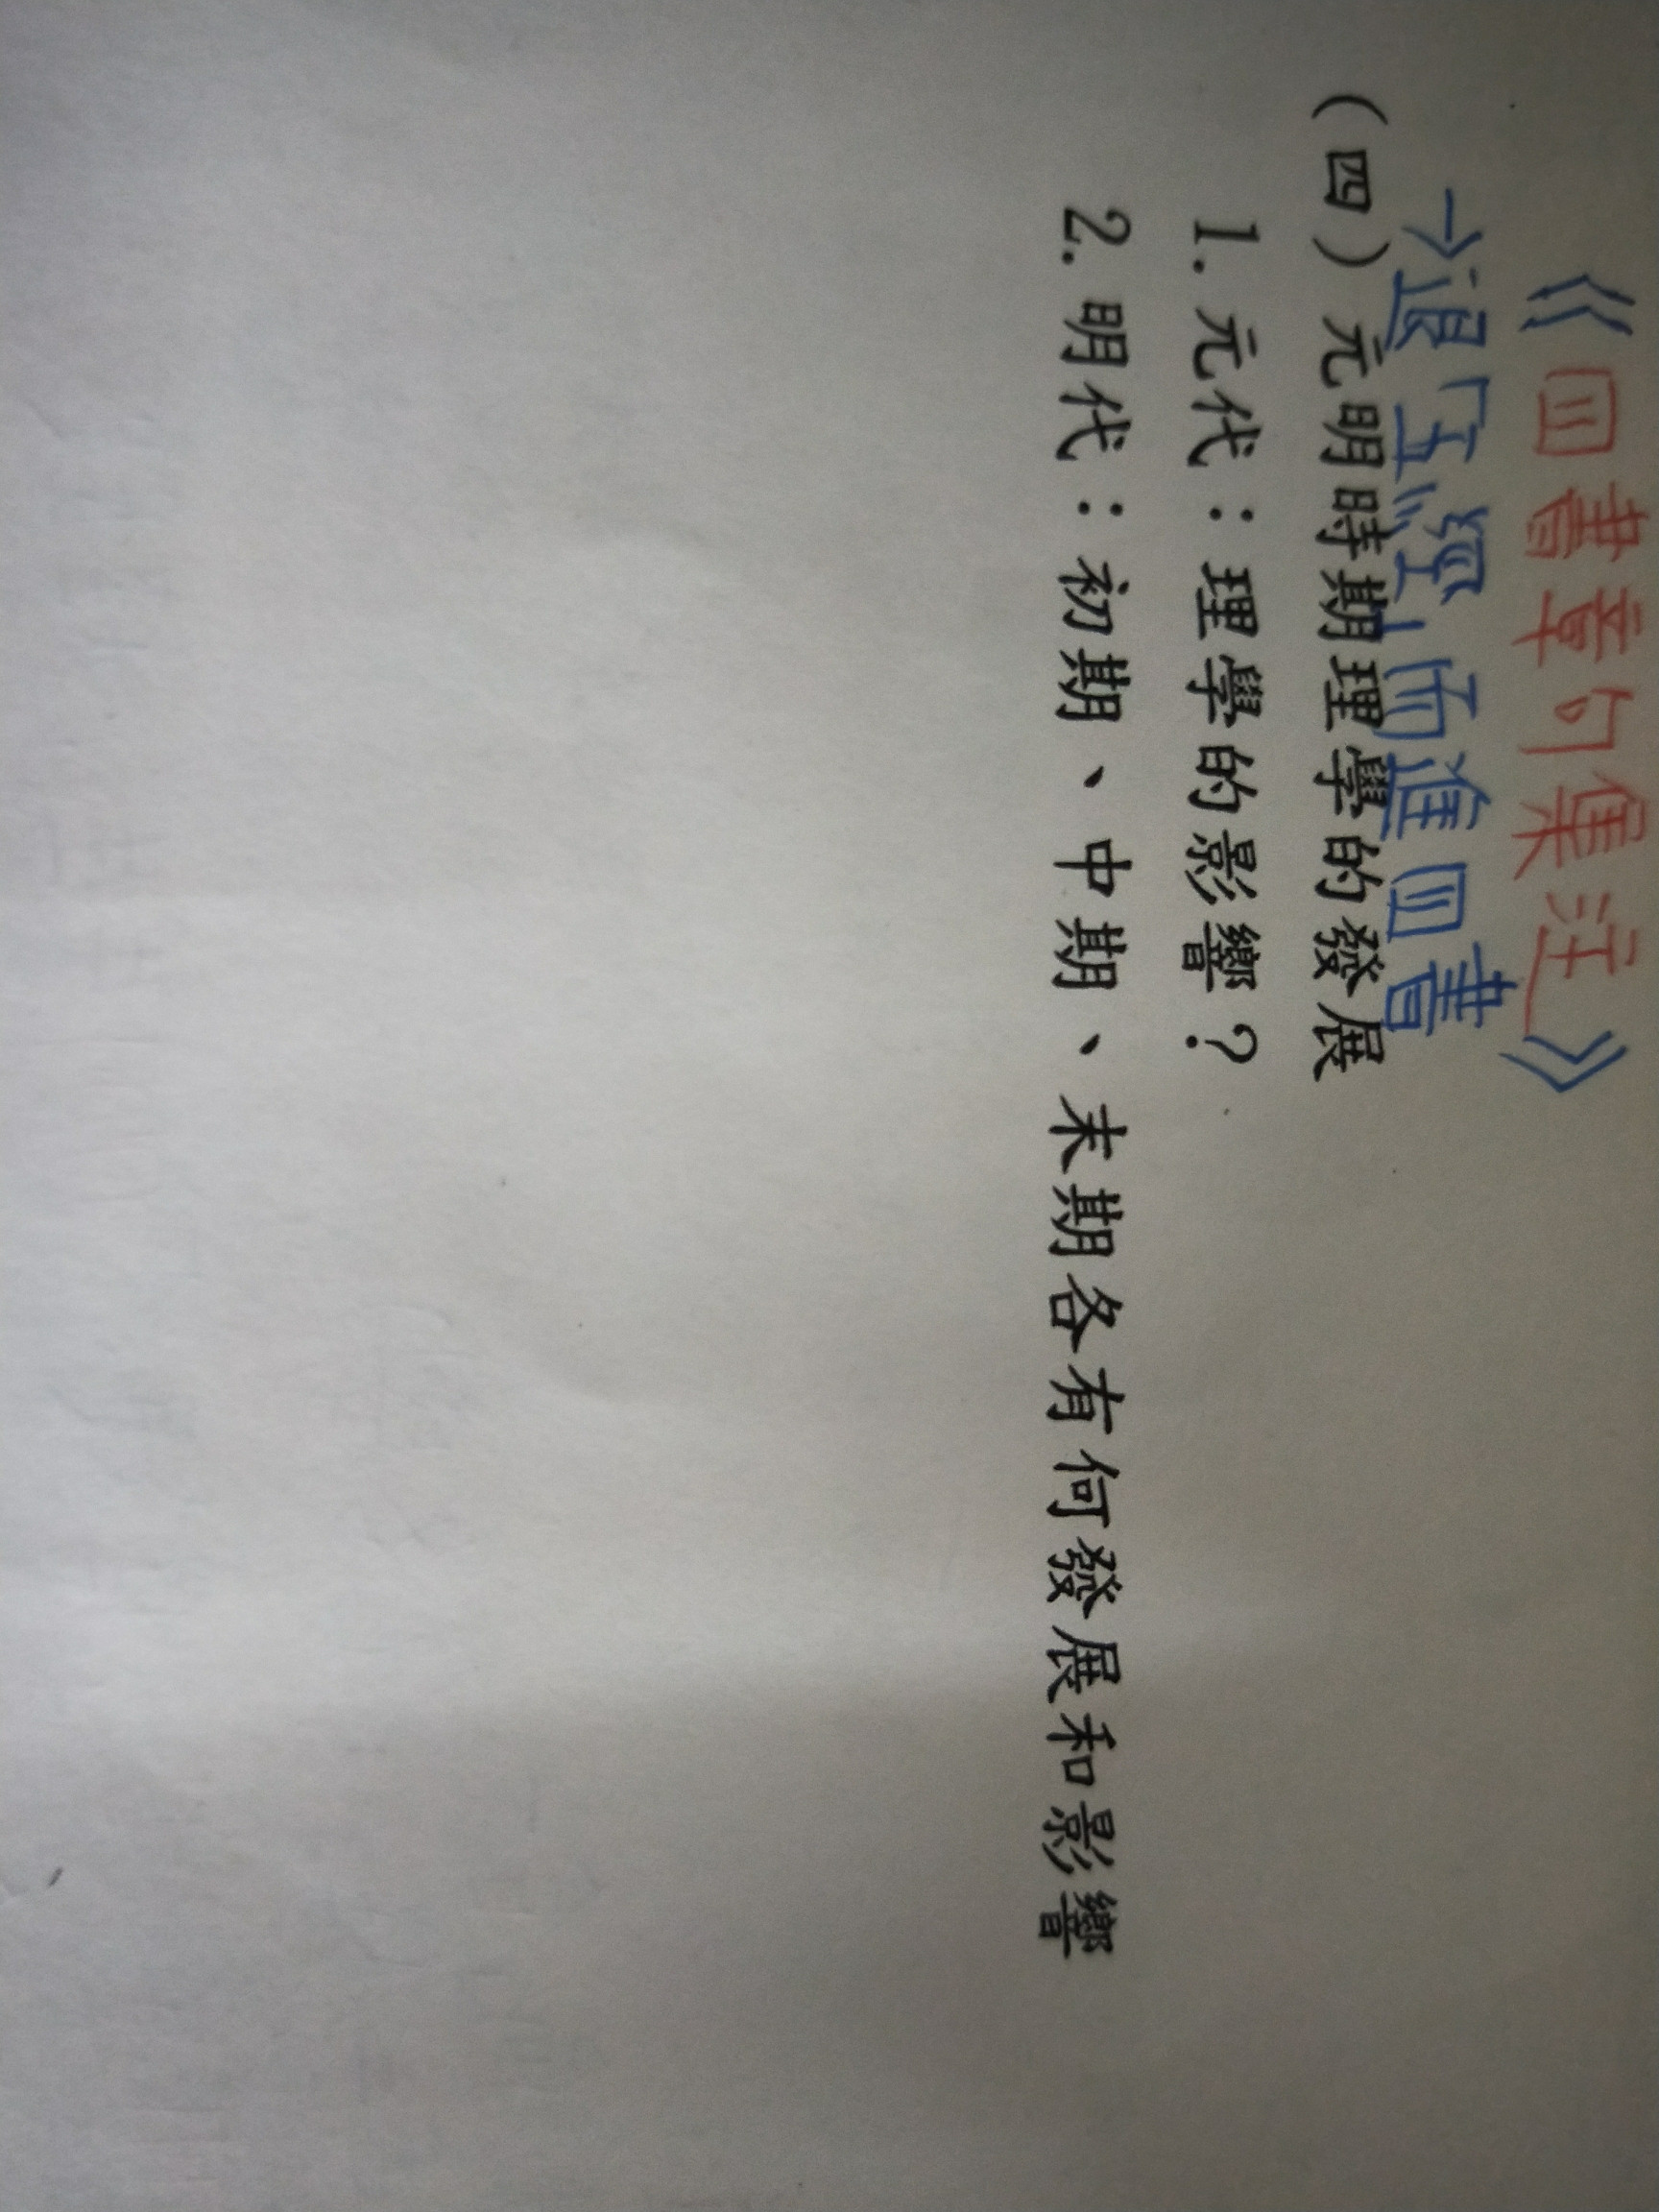 《四書章句集注》
→退「五經」而進四書
（四）元明時期理學的發展
1.元代：理學的影響？
2.明代：初期、中期、末期各有何發展和影響